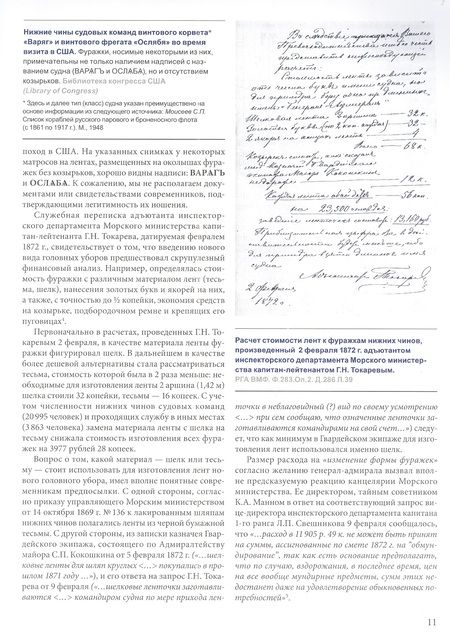 Нижние чины судовых команд винтового корвета*
«Варяг» и винтового фрегата «Ослябя» во время
визита в США. Фуражки, носимые некоторыми из них,
примечательны не только наличием надписей с на-
званием судна (ВАРАГЪ и ОСЛАБА), но и отсутствием
козырьков. Библиотека конгресса США
(Library of Congress)
* Здесь и далее тип (класс) судна указан преимущественно на
основе информации из следующего источника: Моисеев С.П.
Список кораблей русского парового и броненосного флота
(с 1861 по 1917 г.). М., 1948
поход в США. На указанных снимках у некоторых
матросов на лентах, размещенных на околышах фура-
жек без козырьков, хорошо видны надписи: ВАРАГЪ
и ОСЛАБА. К сожалению, мы не располагаем доку-
ментами или свидетельствами современников, под-
тверждающими легитимность их ношения.
Служебная переписка адъютанта инспектор-
ского департамента Морского министерства капи-
тан-лейтенанта Г.Н. Токарева, датируемая февралем
1872 г., свидетельствует о том, что введению нового
вида головных уборов предшествовал скрупулезный
финансовый анализ. Например, определялась стои-
мость фуражки с различным материалом лент (тесь-
ма, шелк), нанесения золотых букв и якорей на них,
а также, с точностью до ½ копейки, экономия средств
на козырьке, подбородочном ремне и крепящих его
пуговицах¹.
Первоначально в расчетах, проведенных Г.Н. То-
каревым 2 февраля, в качестве материала ленты фу-
ражки фигурировал шелк. В дальнейшем в качестве
более дешевой альтернативы стала рассматриваться
тесьма, стоимость которой была в 2 раза меньше: не-
обходимые для изготовления ленты 2 аршина (1,42 м)
шелка стоили 32 копейки, тесьмы — 16 копеек. С уче-
том численности нижних чинов судовых команд
(20 995 человек) и проходящих службу в иных местах
(3 863 человека) замена материала ленты с шелка на
тесьму снижала стоимость изготовления всех фура-
жек на 3977 рублей 28 копеек.
Вопрос о том, какой материал — шелк или тесь-
му — стоит использовать для изготовления лент но-
вого головного убора, имел вполне понятные совре-
менникам предпосылки. С одной стороны, соглас-
но приказу управляющего Морским министерством
от 14 октября 1869 г. № 136 к лакированным шляпам
нижних чинов полагались ленты из черной бумажной
тесьмы. С другой стороны, из записки казначея Гвар-
дейского экипажа, состоящего по Адмиралтейству
майора С.П. Кокошкина от 5 февраля 1872 г. («…шел-
ковые ленты для шляп круглых <…> покупались в про-
шлом 1871 году …»), и его ответа на запрос Г.Н. Тока-
рева от 9 февраля («…шелковые ленточки заготавлива-
ются <…> командиром судна по мере прихода лен-
Расчет стоимости лент к фуражкам нижних чинов,
произведенный 2 февраля 1872 г. адъютантом
инспекторского департамента Морского министер-
ства капитан-лейтенантом Г.Н. Токаревым.
РГА ВМФ. Ф.283.Оп.2. Д.286 Л.39
точки в неблаговидный (?) вид по своему усмотрению
<…> при сем сообщаю, что означенные ленточки за-
готавливаются командирами на свой счет…») следу-
ет, что как минимум в Гвардейском экипаже для изго-
товления лент использовался именно шелк.
Размер расхода на «изменение формы фуражек»
согласно желанию генерал-адмирала вызвал впол-
не предсказуемую реакцию канцелярии Морского
министерства. Ее директор, тайный советником
К.А. Манном в ответ на соответствующий запрос ви-
це-директора инспекторского департамента капитана
1-го ранга Л.П. Свешникова 9 февраля сообщалось,
что «…расход в 11 905 р. 49 к. не может быть принят
на суммы, ассигнованные по смете 1872 г. на “обмун-
дирование”, так как есть основание предполагать,
что по случаю, вздорожания, в последнее время, цен
на все вообще мундирные предметы, сумм этих не-
достанет даже на удовлетворение обыкновенных по-
требностей»².
11